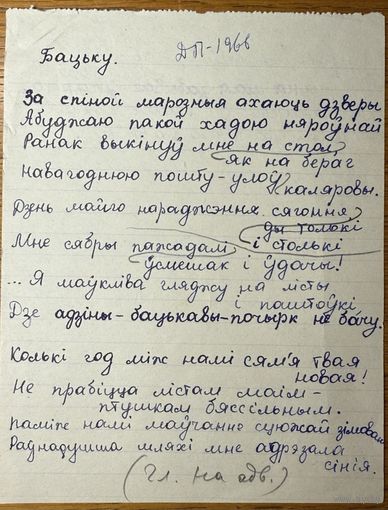 ДП-1966
Бацьку.
За спіной марозныя ахаюць дзверы
Абуджаю пакой хадою няроўнай
Ранак выкінуў мне на стол,
як на бераг
Навагоднюю пошту - улоў
каляровы.
Дзень майго нараджэння сягоння,
ды толькі
Мне сябры пажадалі і столькі
ўсмешак і ўдачы!
... Я маўкліва гляджу на лісты
і паштоўкі
Дзе адзіны - бацькавы - почырк не бачу.
Колькі год між намі сям'я твая
новая!
Не прабіцца лістам маім -
птушкам бяссільным.
Паміж намі маўчанне сцюжай зімовай
Раўнадушша шляхі мне адрэзала
сінія.
(Гл. на адв.)